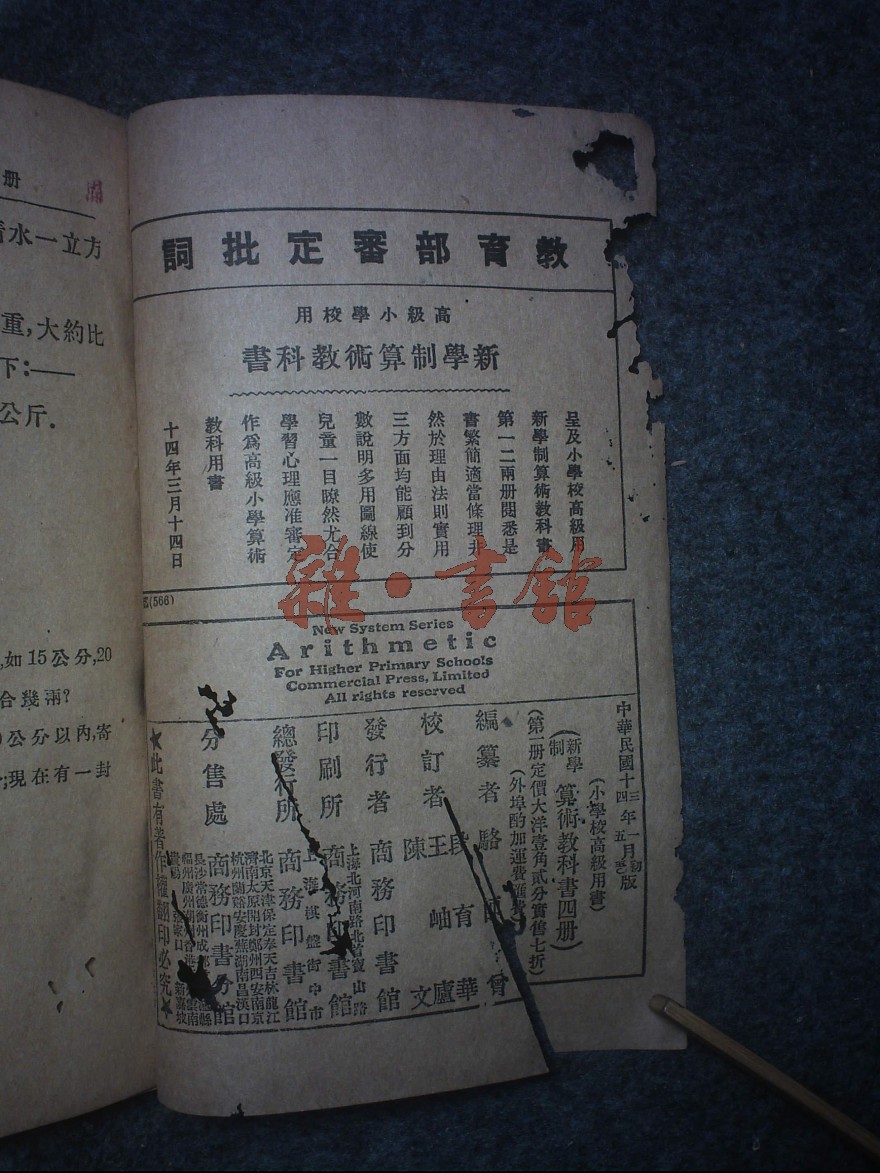 册
清水一立方
重,大約比
下:——
公斤.
,如15公分,20
合幾兩?
公分以內,寄
;現在有一封
教育部審定批詞
高級小學校用
新學制算術教科書
呈及小學校高級用
新學制算術教科書
第一二兩册閱悉是
書繁簡適當條理井
然於理由法則實用
三方面均能顧到分
數說明多用圖線使
兒童一目瞭然尤合
學習心理應准審定
作爲高級小學算術
教科用書
十四年三月十四日
(566)
雜·書館
New System Series
Arithmetic
For Higher Primary Schools
Commercial Press, Limited
All rights reserved
中華民國十三年一月初版
十四 五
(小學校高級用書)
(新學制算術教科書四册)
(第一册定價大洋壹角貳分實售七折)
(外埠酌加運費匯費)
編纂者 駱 曾
校訂者 段育華 王岫廬 陳 文
發行者 商務印書館
印刷所 上海北河南路北首寶山路 商務印書館
總發行所 上海棋盤街中市 商務印書館
分售處 北京天津保定奉天吉林龍江
濟南太原開封鄭州西安南京
杭州蘭谿安慶蕪湖南昌漢口
商務印書分館
長沙常德衡州成都
福州廣州潮州香港 雲南
張家口 新嘉坡
★此書有著作權翻印必究★